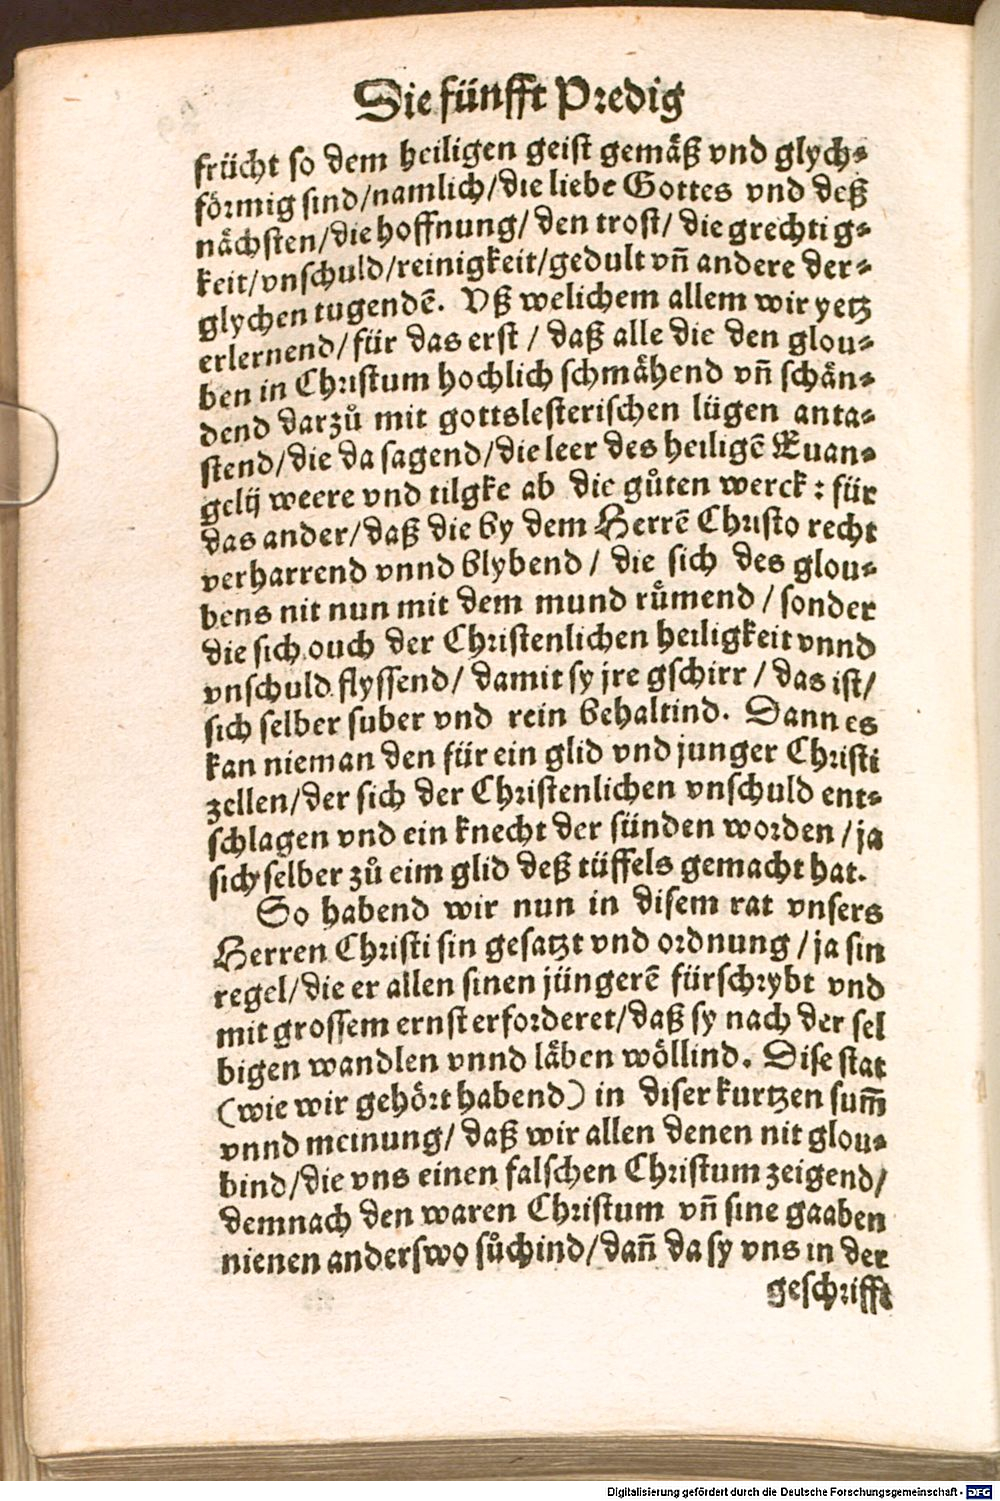 Die fünfft Predig
frücht so dem heiligen geist gemäß vnd glych⸗
förmig sind/namlich/die liebe Gottes vnd deß
nächsten/die hoffnung/ den trost/ die grechtig⸗
keit/vnschuld/reinigkeit/gedult vñ andere der⸗
glychen tugendē. Vß welichem allem wir yetz
erlernend/für das erst / daß alle die den glou⸗
ben in Christum hochlich schmähend vñ schän⸗
dend darzů mit gottslesterischen lügen anta⸗
stend/die da sagend/die leer des heiligē Euan⸗
gelij weere vnd tilgke ab die gůten werck : für
das ander/daß die by dem Herrē Christo recht
verharrend vnnd blybend / die sich des glou⸗
bens nit nun mit dem mund růmend / sonder
die sich ouch der Christenlichen heiligkeit vnnd
vnschuld flyssend/ damit sy jre gschirr / das ist/
sich selber suber vnd rein behaltind. Dann es
kan nieman den für ein glid vnd junger Christi
zellen/der sich der Christenlichen vnschuld ent⸗
schlagen vnd ein knecht der sünden worden /ja
sich selber zů eim glid deß tüffels gemacht hat.
So habend wir nun in disem rat vnsers
Herren Christi sin gesatzt vnd ordnung /ja sin
regel/die er allen sinen jüngerē fürschrybt vnd
mit grossem ernst erforderet/daß sy nach der sel
bigen wandlen vnnd läben wöllind. Dise stat
(wie wir gehört habend) in diser kurtzen sum̄
vnnd meinung/ daß wir allen denen nit glou⸗
bind/die vns einen falschen Christum zeigend/
demnach den waren Christum vñ sine gaaben
nienen anderswo sůchind/dañ da sy vns in der
geschrifft
Digitalisierung gefördert durch die Deutsche Forschungsgemeinschaft - DFG